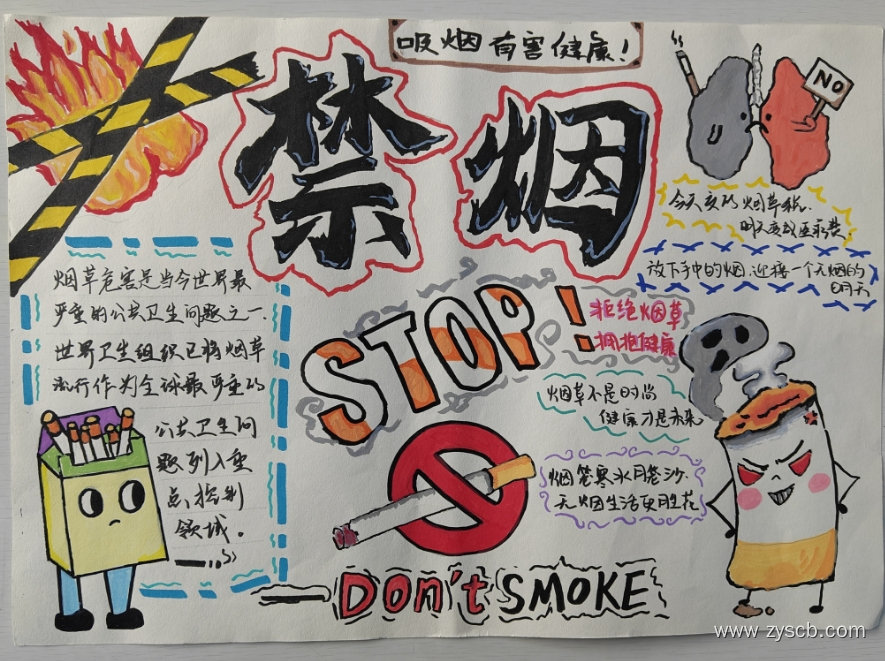 吸烟有害健康！
禁烟
NO
今天交的烟草税.
明天变成医药费.
放下手中的烟.迎接一个无烟的
明天
烟草危害是当今世界最
严重的公共卫生问题之一.
世界卫生组织已将烟草
流行作为全球最严重的
公共卫生问
题列入重
点控制
领域.
STOP!
拒绝烟草
拥抱健康
烟草不是时尚
健康才是未来
烟笼寒水月笼沙.
无烟生活更胜花
Don't SMOKE
www.zyscb.com